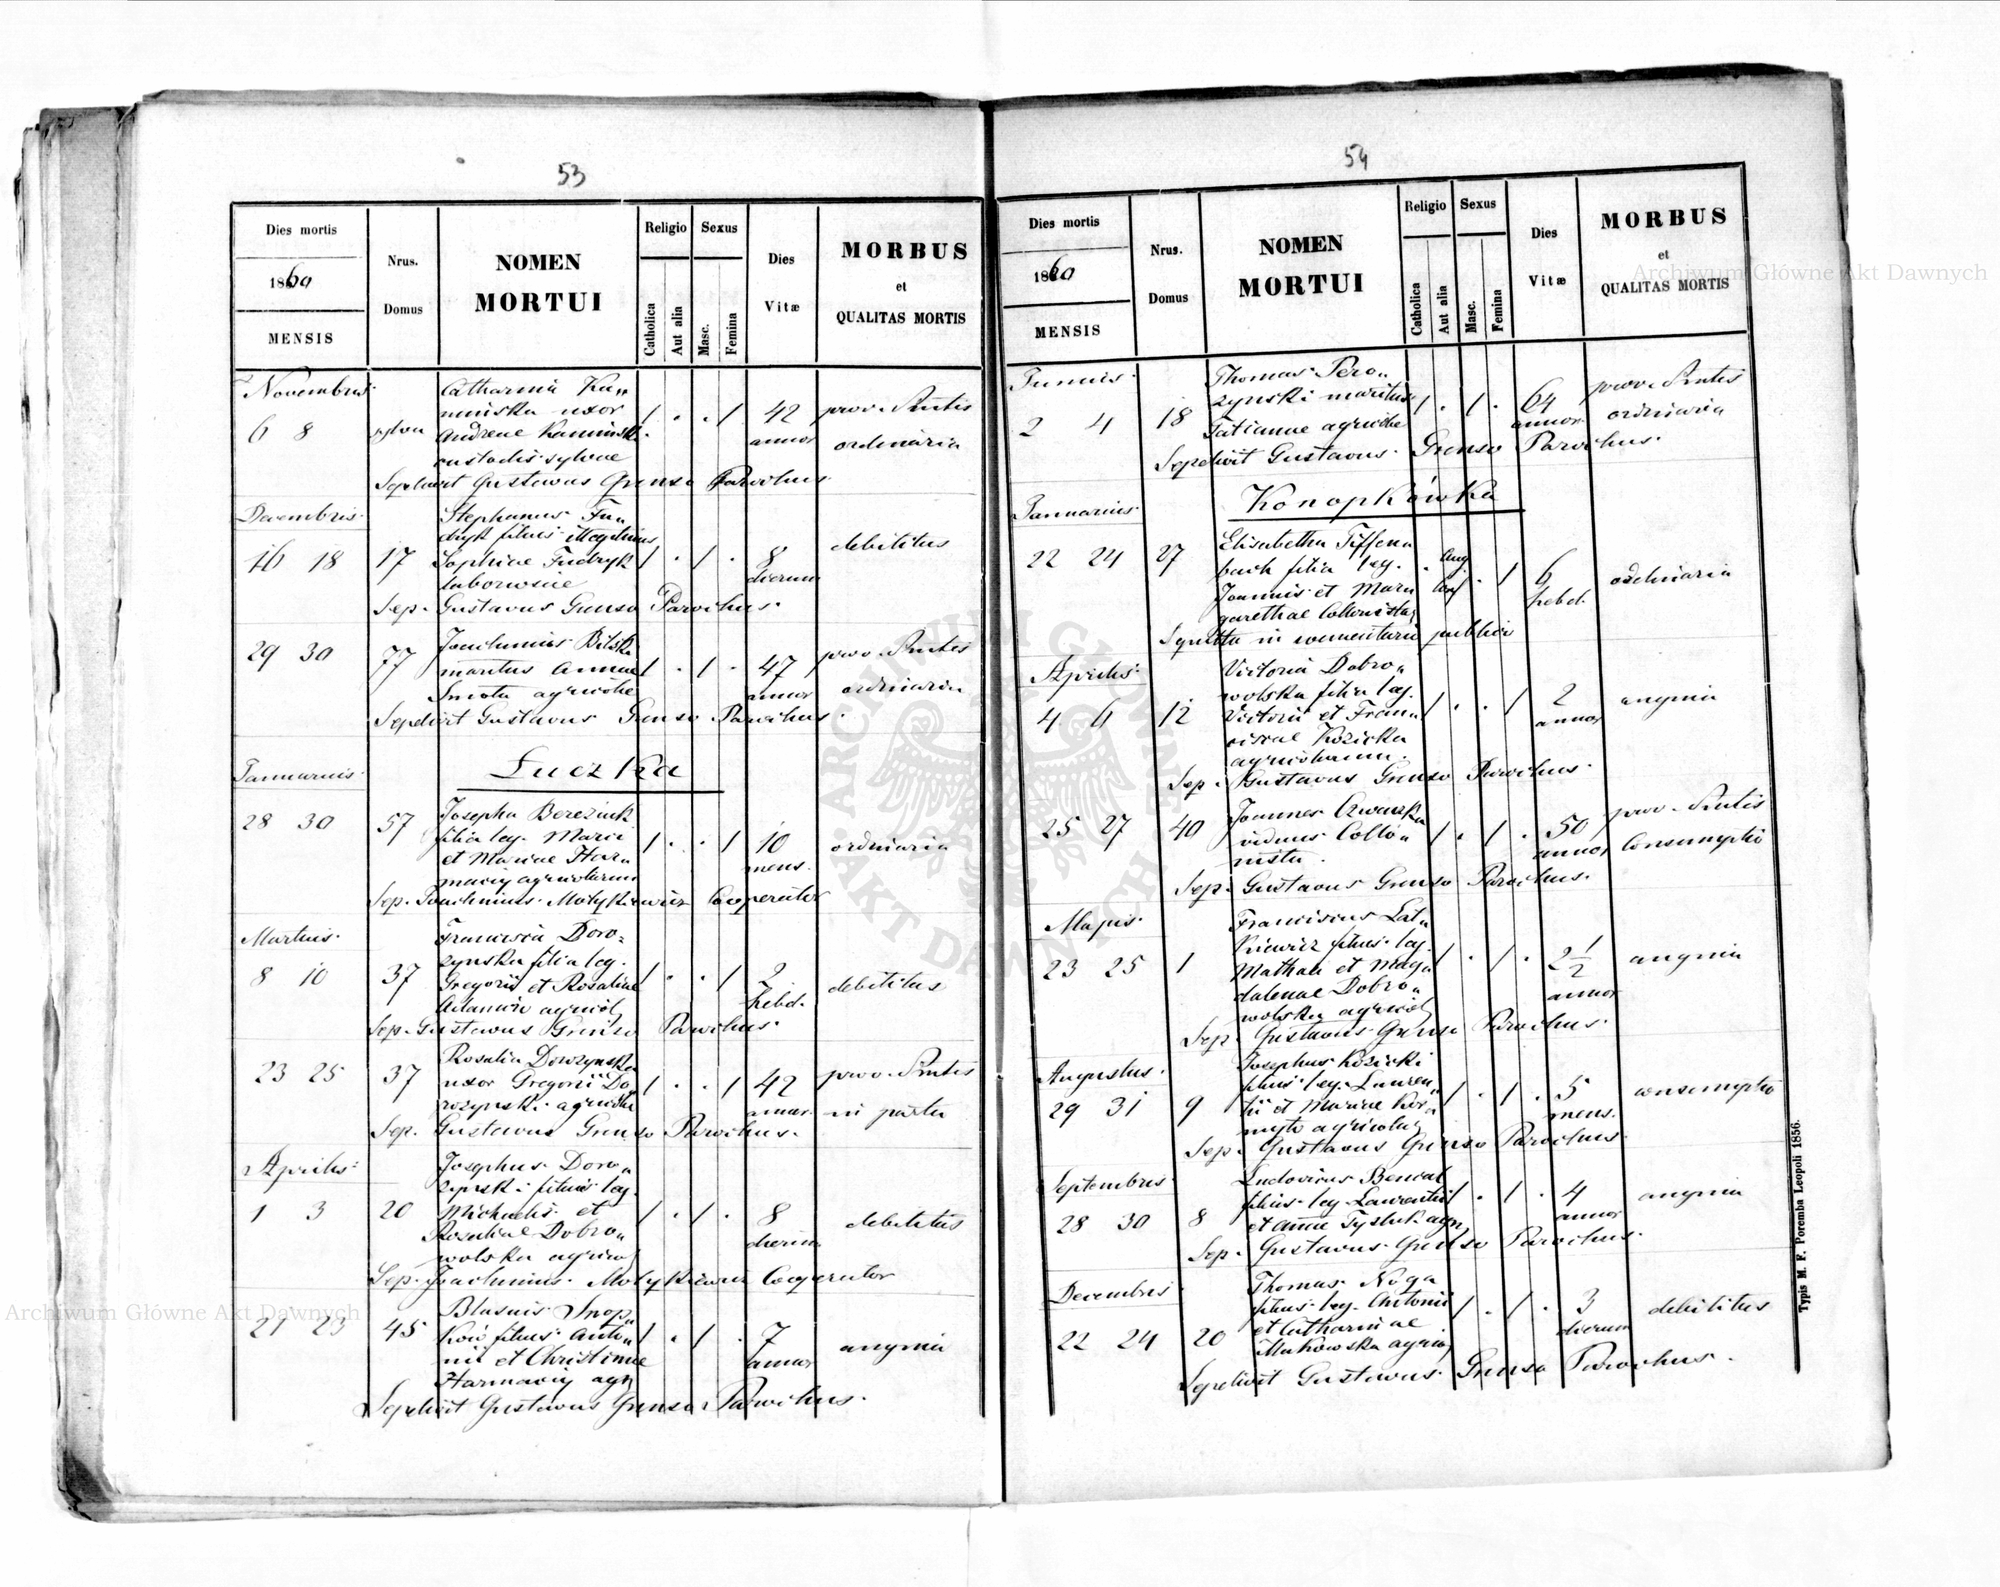 53
Dies mortis
1860
MENSIS
Nrus.
Domus
NOMEN
MORTUI
Religio
Catholica
Aut alia
Sexus
Masc.
Femina
Dies
Vitæ
MORBUS
et
QUALITAS MORTIS
Novembris
6 8
Catharina Ka„
minska uxor
Andreae Kaminski
custodis sylvae
1 . . 1
42
annor
prov. Smtis
ordinaria
Sepelivit Gustavus Parochus
Decembris
16 18
17
Stephanus Fu„
dryk filius illegitimus
Sophiae Fudryk
1 . 1 .
8
dierum
debilitas
Sep. Gustavus Parochus.
29 30
77
Joachimus Bilski
maritus Annae
agricolae
1 . 1 .
47
annor
prov. Smtis
ordinaria
Sepelivit Gustavus Parochus.
Luczka
Januarius
28 30
57
Josepha Bereziuk
filia leg. Marci
et Mariae Har„
maciy agricolarum
1 . . 1
10
mens.
ordinaria
Sep. Joachimus Motykiewicz Cooperator
Martius
8 10
37
Francisca Doro„
zynska filia leg.
Gregorii et Rosaliae
agricol
1 . . 1
2
hebd.
debilitas
Sep. Gustavus Parochus.
23 25
37
Rosalia Dorozynska
uxor Gregorii Do„
rozynski agricolae
1 . . 1
42
annor.
prov. Smtis
in partu
Sep. Gustavus Parochus.
Aprilis
1 3
20
Josephus Doro„
zynski filius leg.
Michaelis et
Rosaliae Dobro„
wolska agricol
1 . 1 .
8
dierum
debilitas
Sep. Joachimus Motykiewicz Cooperator
21 23
45
Blasius Snop„
kow filius Anto„
nii et Christinae
Harmaciy agr
1 . 1 .
7
annor
angina
Sepelivit Gustavus Parochus.
54
Dies mortis
1860
MENSIS
Nrus.
Domus
NOMEN
MORTUI
Religio
Catholica
Aut alia
Sexus
Masc.
Femina
Dies
Vitæ
MORBUS
et
QUALITAS MORTIS
Junius
2 4
18
Thomas Pero„
zynski maritus
Tatianae agricolae
1 . 1 .
64
annor
prov. Smtis
ordinaria
Sepelivit Gustavus Parochus.
Konopkówka
Januarius
22 24
27
Elisabetha Tiffen„
bach filia leg.
Joannis et Mar„
garethae Collonistar
. Aug. . 1
Conf
6
hebd.
ordinaria
Sepulta in coementario publico
Aprilis
4 6
12
Victoria Dobro„
wolska filia leg.
Victorii et Fran„
ciscae Kozicka
agricolarum.
1 . . 1
2
annor
angina
Sep. Gustavus Parochus.
25 27
40
Joannes
viduus Collo„
nista.
1 . 1 .
50
annor
prov. Smtis
Consumptio
Sep. Gustavus Parochus.
Majus
23 25
1
Franciscus Lat„
kiewicz filius leg.
et Mag„
dalenae Dobro„
wolska agricol
1 . 1 .
2 1/2
annor
angina
Sep. Gustavus Parochus.
Augustus
29 31
9
Josephus Kozicki
filius leg. Lauren„
tii et Mariae
agricolar
1 . 1 .
5
mens.
consumptio
Sep. Gustavus Parochus.
Septembris
28 30
8
Ludovicus
filius leg. Laurentii
et Annae agr
1 . 1 .
4
annor
angina
Sep. Gustavus Parochus.
Decembris
22 24
20
Thomas Noga
filius leg. Antonii
et Catharinae
Makowska agric
1 . 1 .
3
dierum
debilitas
Sepelivit Gustavus Parochus.
Typis M. F. Poremba Leopoli 1856.
Archiwum Główne Akt Dawnych
Archiwum Główne Akt Dawnych
ARCHIWUM GŁÓWNE AKT DAWNYCH